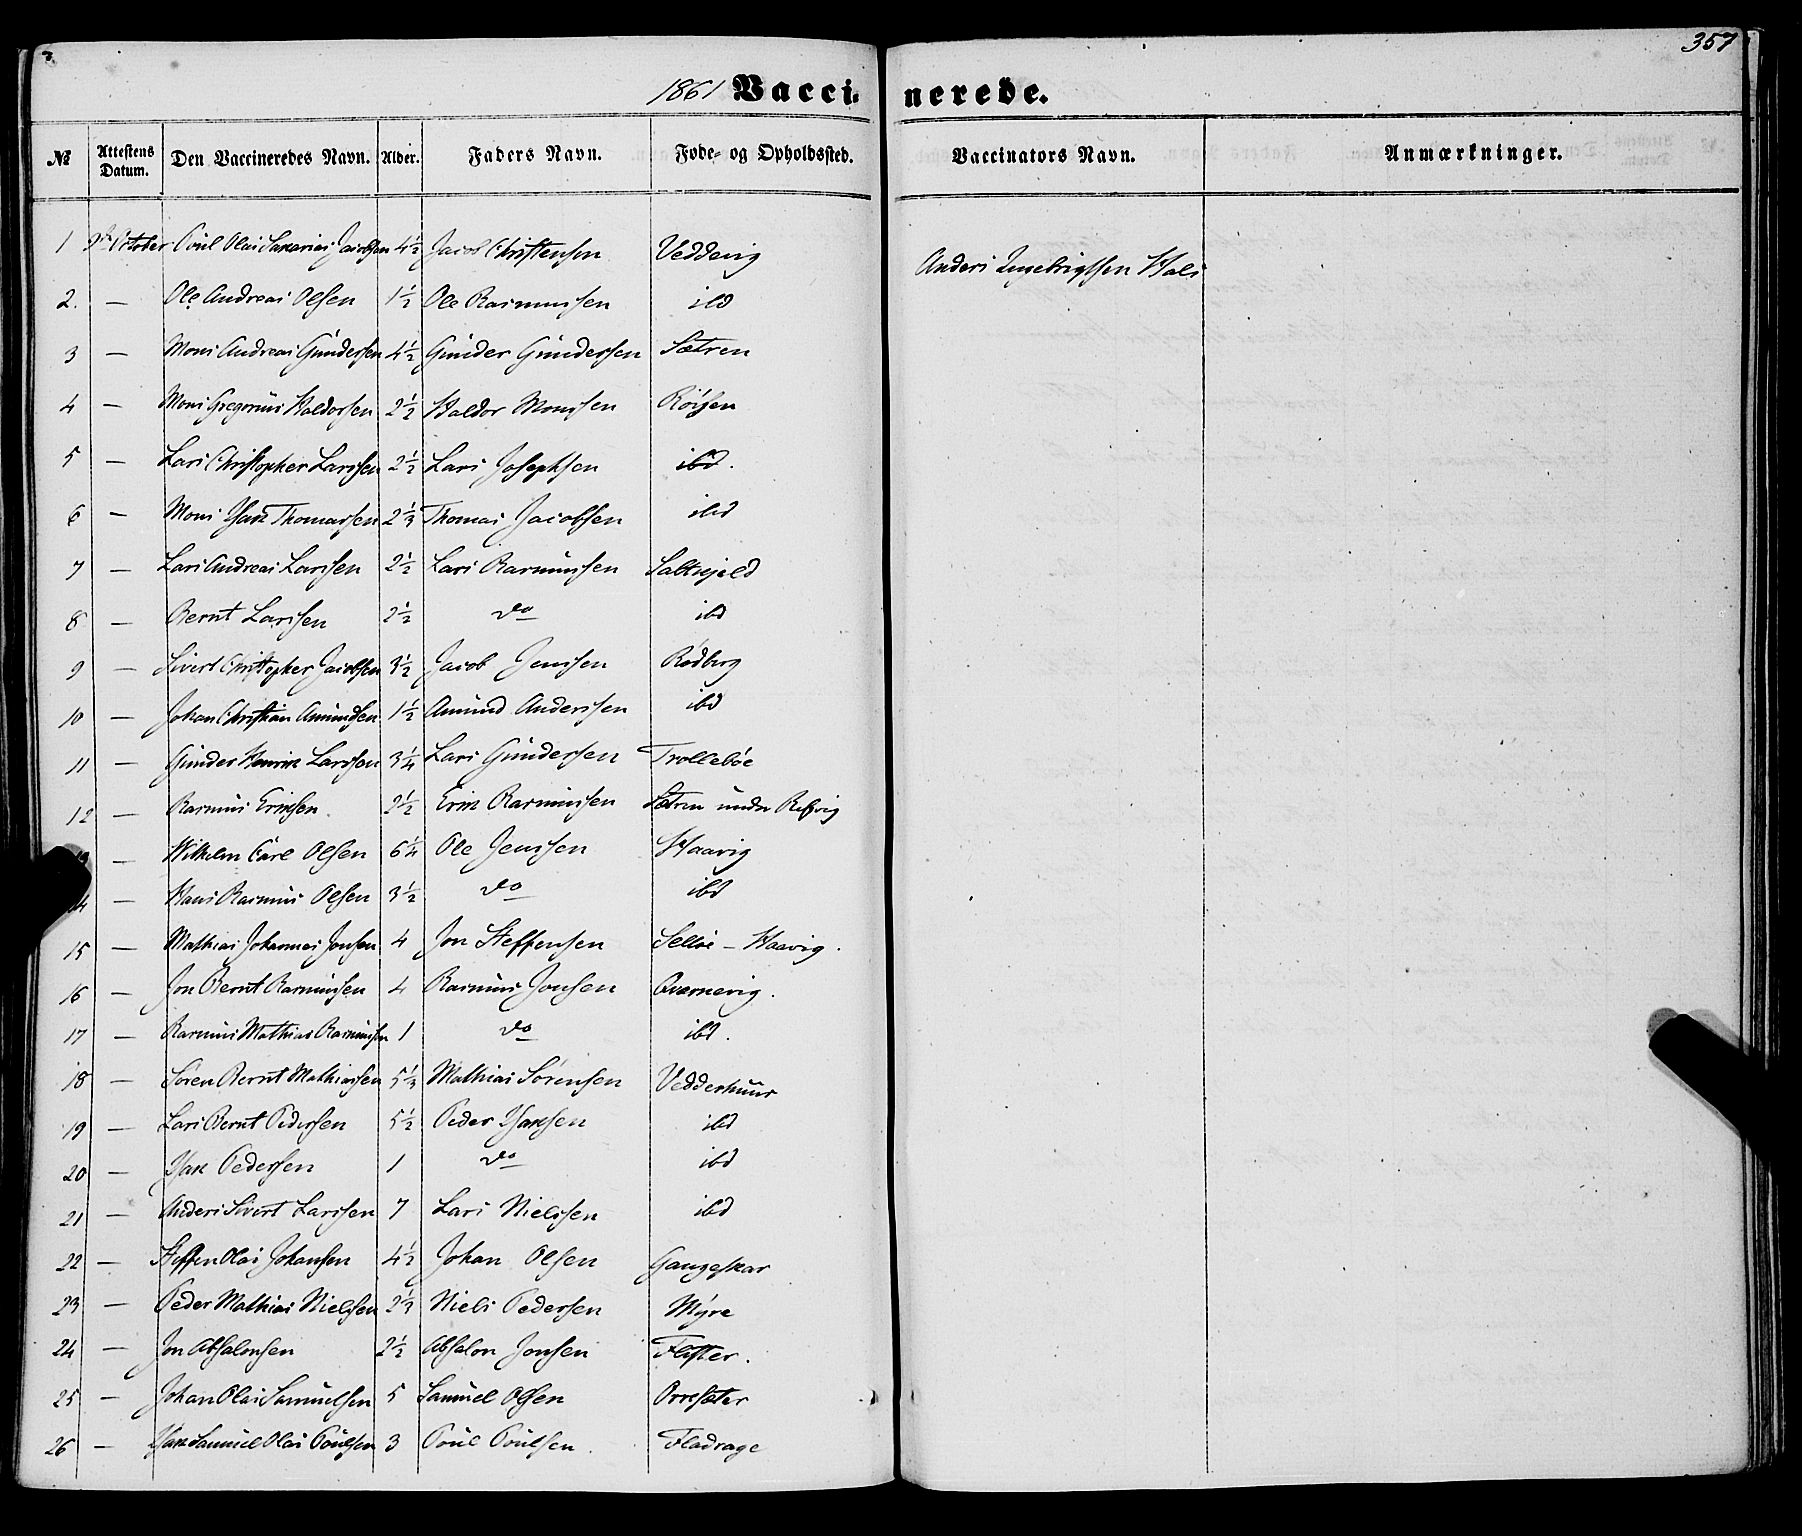 357
1861 Vaccinerede.
№ Attestens Datum. Den Vaccineredes Navn. Alder. Faders Navn. Føde- og Opholdssted. Vaccinators Navn. Anmærkninger.
1 October Poul Olai Zakarias Jacobsen 4½ Jacob Christensen Veddevig Anders Ingebrigtsen Hals
2. — Ole Andreas Olsen 1½ Ole Rasmussen ibd
3 — Mons Andreas Gundersen 4½ Gunder Gundersen Sætren
4 — Mons Gregorius Haldorsen 2½ Haldor Monssen Röisen
5 — Lars Christopher Larssen 2½ Lars Josephsen ibd.
6 — Mons Isak Thomassen 2⅓ Thomas Jacobsen ibd
7 — Lars Andreas Larssen 2½ Lars Rasmussen Saltkjeld
8 — Bernt Larssen 2½ do ibd
9 — Sivert Christopher Jacobsen 3½ Jacob Jenssen Rødberg
10 — Johan Christian Amundsen 1½ Amund Anderssen ibd
11 — Gunder Henrik Larssen 3¼ Lars Gundersen Trolleböe
12 — Rasmus Eriksen 2½ Erik Rasmussen Sætren under Refvig
13 — Wilhelm Carl Olsen 6¼ Ole Jenssen Haavig
14 — Hans Rasmus Olsen 3½ do ibd
15 — Mathias Johannes Jonsen 4 Jon Steffensen Selløe – Haavig.
16 — Jon Bernt Rasmussen 4 Rasmus Jonsen Qværnevig.
17 — Rasmus Mathias Rasmussen 1 do ibd.
18 — Sören Bernt Mathiassen 5⅓ Mathias Sörensen Vedderhuus
19 — Lars Bernt Pedersen 5½ Peder Isaksen ibd
20 — Isak Pedersen 1 do ibd
21 — Anders Sivert Larssen 7 Lars Nielssen ibd
22 — Steffen Olai Johansen 4½ Johan Olsen Gangeskar
23 — Peder Mathias Nielssen 2⅓ Niels Pedersen Myre
24 — Jon Absalonsen 2½ Absalon Jonsen Flister.
25 — Johan Olai Samuelsen 5 Samuel Olsen Orresæter
26 — Isak Samuel Olai Poulsen 3 Poul Poulsen. Fladrage